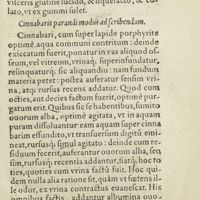 vulceris glutine lucido, & liquefacto, & co
lato, vt ex gummi solet.
Cinnabaris parandi modus ad scribendam.
Cinnabari, cum super lapide porphyrite
optimè, aqua communi contritum: deinde
exiccatum fuerit, ponatur in vas aliquod of-
seum, vel vitreum, vrinaq́; superinfundatur,
relinquaturq́; sic aliquandiu: nam quædam
materia petet: postea auferatur sensim vri-
na, atq; rursus recens addatur. Quod cum
octies, aut decies factum fuerit, optimè pur-
gatum erit. Quibus sic se habentibus, sumito
ouorum alba, optimè agitata, vt in aquam
puram dissoluantur: eam aquam super cinna
barim effundito, vt transuersum digitũ emi-
neat, rursusq́; simul agitato: deinde cum re-
sidium fecerit, auferantur ouorum alba, sen
sim, rursusq́; recentia addantur, fiatq́; hoc to
ties, quoties cum vrina factũ fuit. Hoc qui-
dem nulla alia ratione fit, quàm vt fœtens il-
le odor, ex vrina contractus euanescat. His
omnibus factis, addantur albumina ouo-